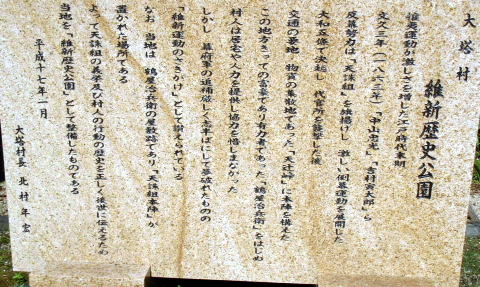 大塔村
維新歴史公園
攘夷運動が激しさを増した江戸時代末期
文久三年(一八六三年)「中山忠光」「吉村寅太郎」ら
反幕勢力は「天誅組」を旗揚げし 激しい倒幕運動を展開した
大和五條で決起し 代官所を襲撃した後
交通の要地 物資の集散地であった「天辻峠」に本陣を構えた
この地きっての名家であり有力者であった「鶴屋治兵衛」をはじめ
村人は居宅や人力を提供し協力を惜しまなかった
しかし 幕府軍の追補厳しく志半ばにして夢破れたものの
「維新運動のさきがけ」として讃えられている
なお 当地は「鶴屋治兵衛の屋敷跡であり「天誅組本陣」が
置かれた場所である
よって天誅組の義挙及び村人の行動の歴史を正しく後世に伝えるため
当地を「維新歴史公園」として整備したものである
平成十七年一月
大塔村長 北村年宏